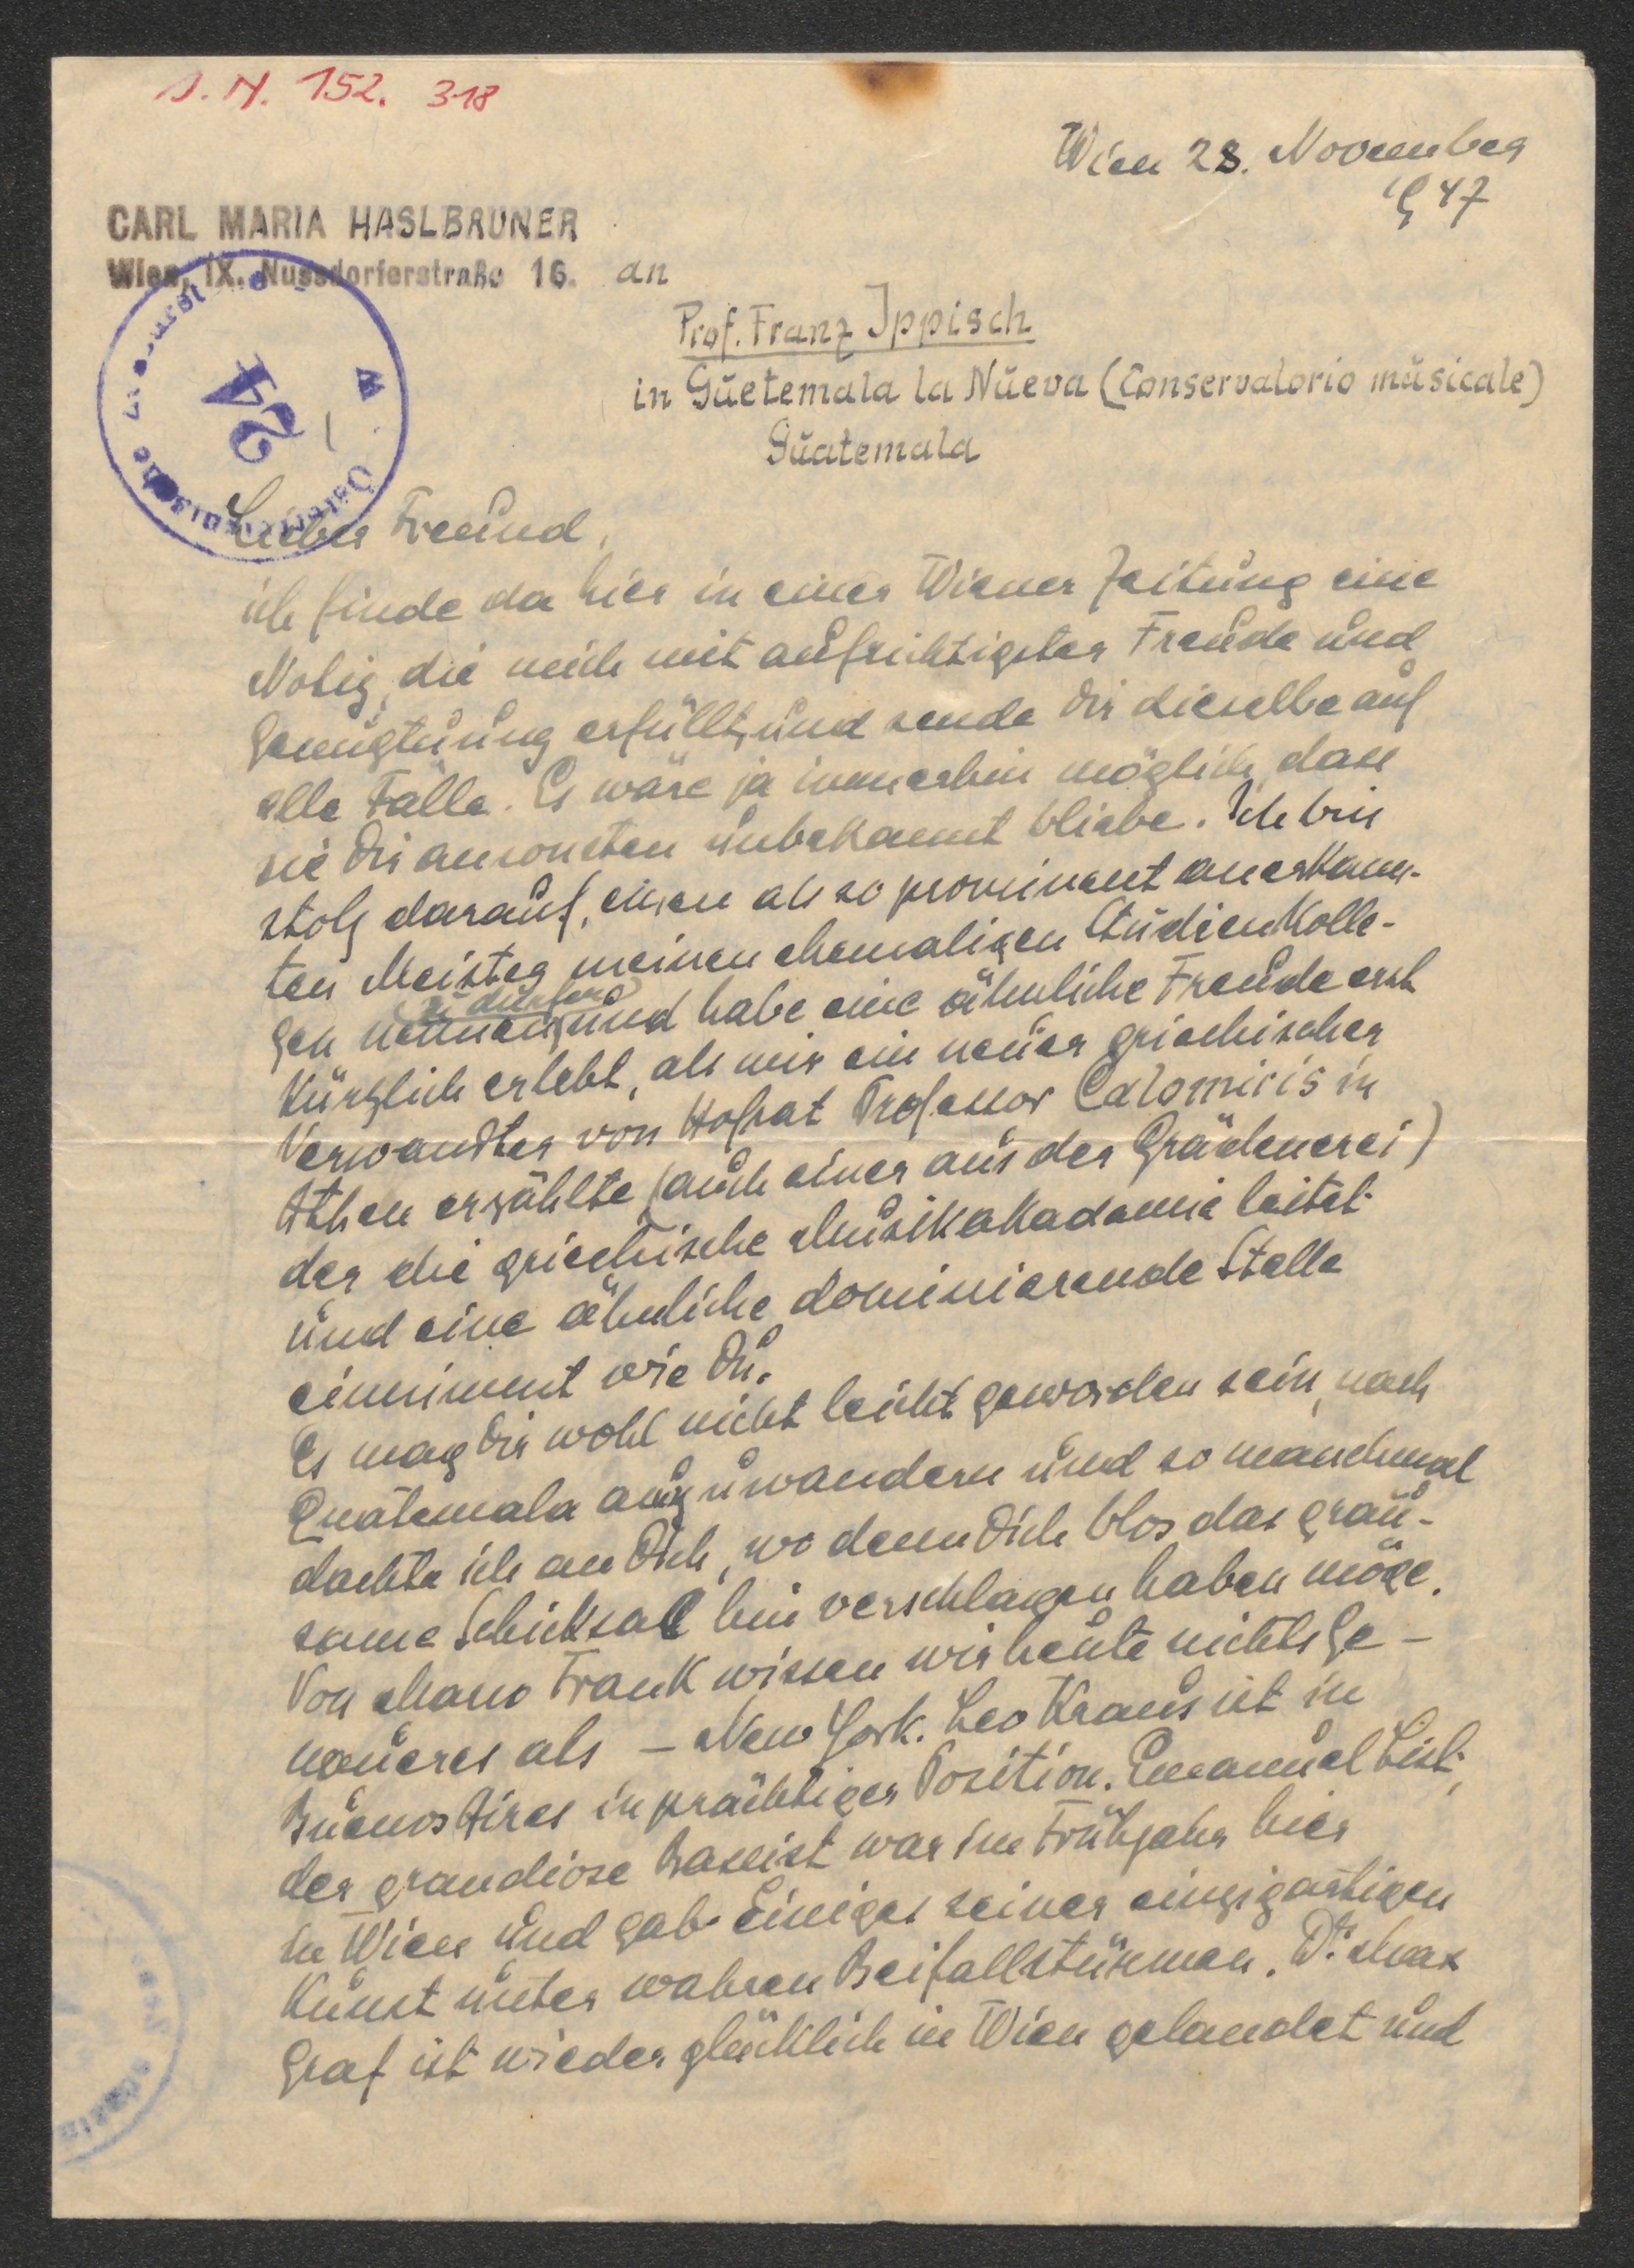 J. N. 152. 318
Wien 28. November
1947
CARL MARIA HASLBRUNER
Wien, IX. Nussdorferstraße 16. an
Prof. Franz Ippisch
in Guetemala la Nueva (Conservatorio musicale)
Guatemala
24
Lieber Freund,
ich finde da hier in einer Wiener Zeitung eine
Notiz, die mich mit aufrichtigster Freude und
Genugtuung erfüllt, und sende Dir dieselbe auf
alle Fälle. Es wäre ja immerhin möglich, dass
sie Dir ansonsten unbekannt bliebe. Ich bin
stolz darauf, einen als so prominent anerkann-
ten Meister meinen ehemaligen Studienkolle-
gen nennen zu dürfen und habe eine ähnliche Freude erst
kürzlich erlebt, als mir ein neuer griechischer
Verwandter von Hofrat Professor Calomiris in
Athen erzählte (auch einer aus der Grädenerei)
der die griechische Musikakademie leitet
und eine ähnliche dominierende Stelle
einnimmt wie Du.
Es mag Dir wohl nicht leicht geworden sein, nach
Quatemala auszuwandern und so manchmal
dachte ich an Dich, wo denn Dich blos das grau-
same Schicksal hin verschlagen haben möge.
Von Marco Frank wissen wir heute nichts Ge-
naueres als – New York. Leo Kraus ist in
Buenos Aires in prächtiger Position. Emanuel List,
der grandiose Bassist war im Frühjahr hier
in Wien und gab Einiges seiner einzigartigen
Kunst unter wahren Beifallstürmen. Dr. Max
Graf ist wieder glücklich in Wien gelandet und